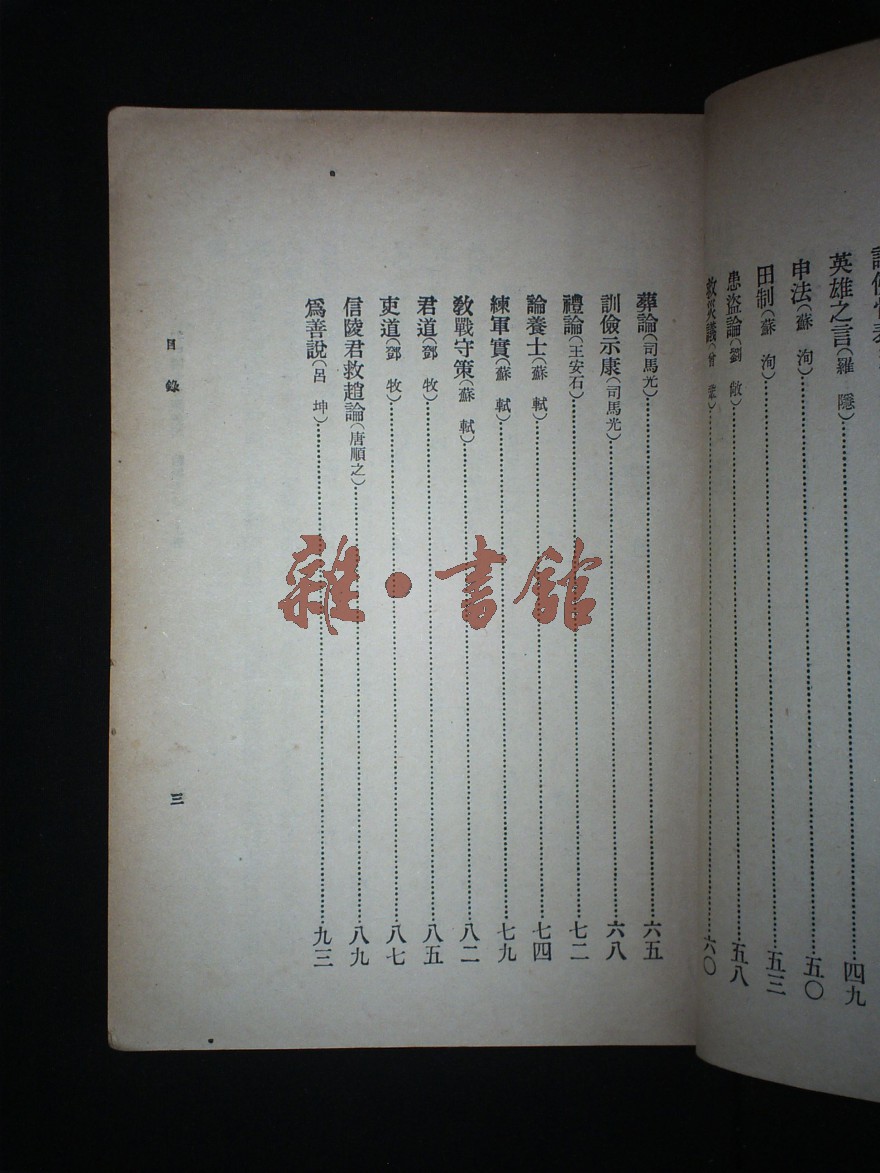 英雄之言(羅隱)……四九
申法(蘇洵)……五〇
田制(蘇洵)……五三
患盜論(劉敞)……五八
救災議(曾鞏)……六〇
葬論(司馬光)……六五
訓儉示康(司馬光)……六八
禮論(王安石)……七二
論養士(蘇軾)……七四
練軍實(蘇軾)……七九
敎戰守策(蘇軾)……八二
君道(鄧牧)……八五
吏道(鄧牧)……八七
信陵君救趙論(唐順之)……八九
爲善說(呂坤)……九三
目錄
三
雜·書館